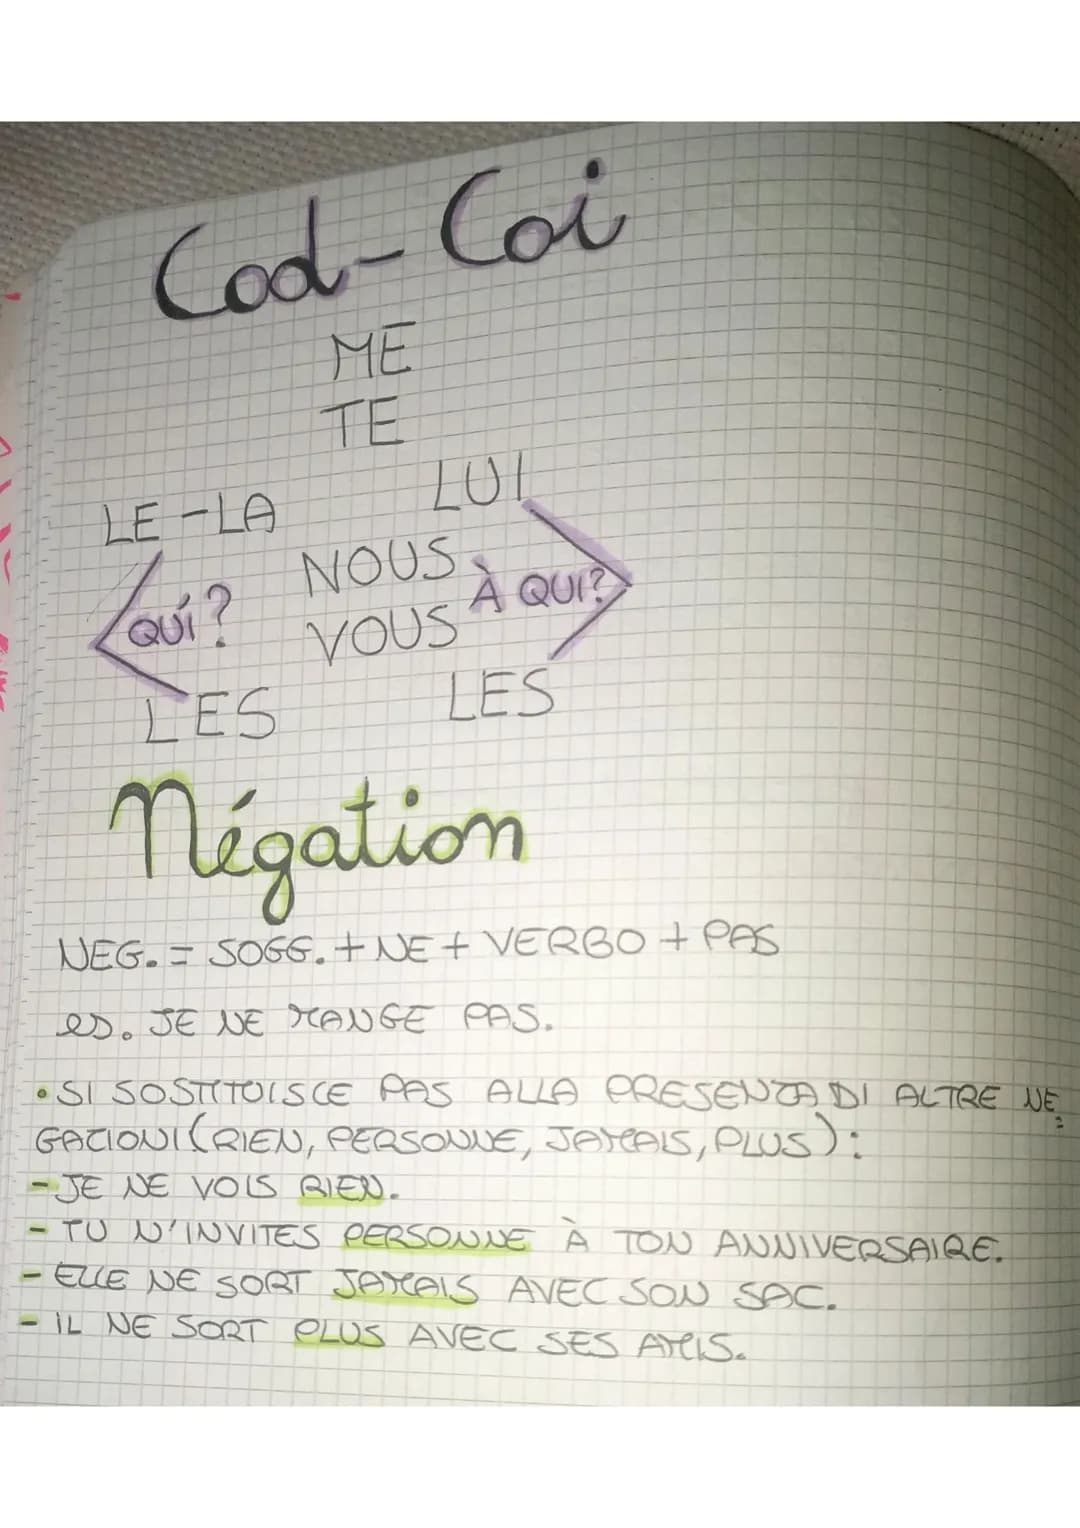 Cod-Coi
ME
TE
LE-LA LUI
NOUS
QUÍ? À QUI?
VOUS
LES LES
Négation
NEG. = SOGG. + NE + VERBO + PAS
es. JE NE MANGE PAS.
• SI SOSTITUISCE PAS ALLA PRESENZA DI ALTRE NE
GAZIONI (RIEN, PERSONNE, JAMAIS, PLUS):
- JE NE VOIS RIEN.
- TU N'INVITES PERSONNE À TON ANNIVERSAIRE.
- ELLE NE SORT JAMAIS AVEC SON SAC.
- IL NE SORT PLUS AVEC SES AMIS.